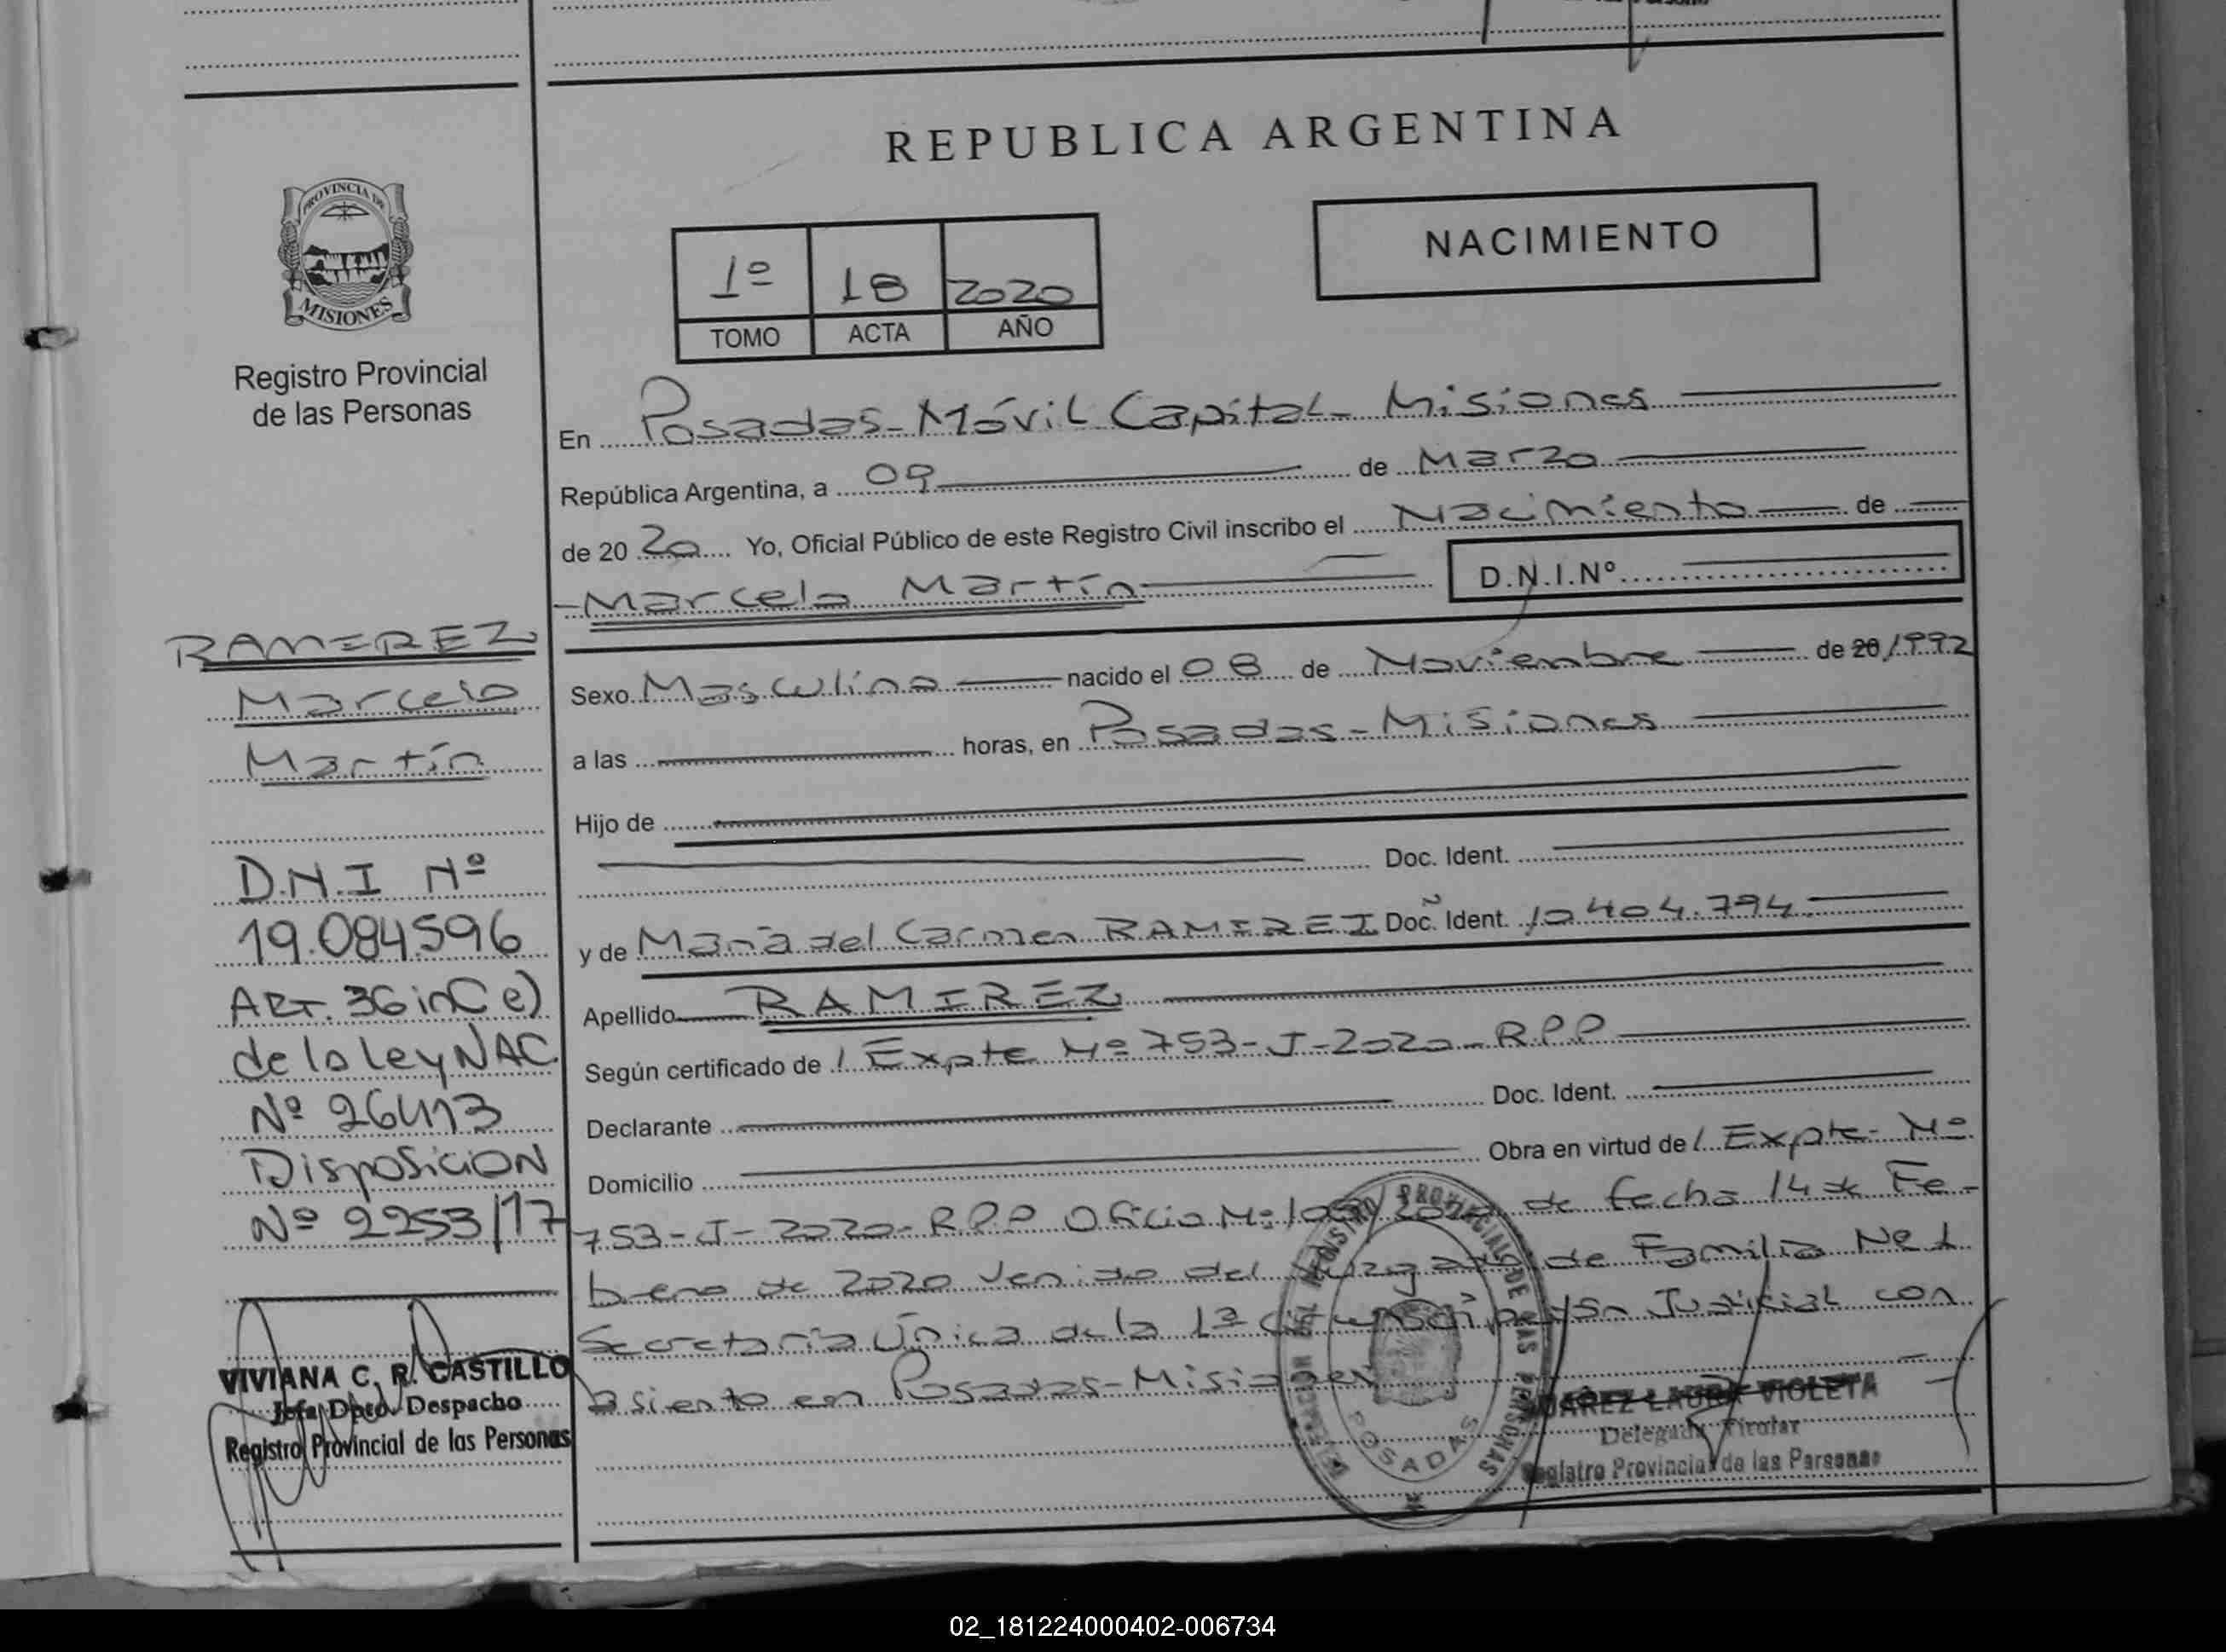 REPUBLICA ARGENTINA
PROVINCIA DE
MISIONES
Registro Provincial
de las Personas
NACIMIENTO
1º 18 2020
TOMO ACTA AÑO
En Posadas - Móvil Capital - Misiones
República Argentina, a 09 de Marzo
de 20 20 Yo, Oficial Público de este Registro Civil inscribo el Nacimiento de
- Marcelo Martín
D.N.I.Nº
RAMIREZ
Marcelo
Martín
D.N.I Nº
19.084.596
ART. 36 inC e)
de la Ley NAC
Nº 26413
DISPOSICION
Nº 2253/17
VIVIANA C. R. CASTILLO
Jefa Dpto. Despacho
Registro Provincial de las Personas
Sexo Masculino nacido el 08 de Noviembre de 20/1992
a las horas, en Posadas - Misiones
Hijo de
Doc. Ident.
y de María del Carmen RAMIREZ Doc. Ident. 10.404.794.
Apellido RAMIREZ
Según certificado de / Expte Nº 753-J-2020-R.P.P
Declarante Doc. Ident.
Domicilio Obra en virtud de / Expte- Nº
753-J-2020-R.P.P Oficio Nº de fecha 14 de Fe-
brero de 2020 venido del Juzgado de Familia Nº 1
Secretaría Única de la 1ª Circunscripción Judicial con
asiento en Posadas - Misiones
DIRECCION DEL REGISTRO PROVINCIAL DE LAS PERSONAS
POSADAS
SUAREZ LAURA VIOLETA
Delegada Titular
Registro Provincial de las Personas
02_181224000402-006734